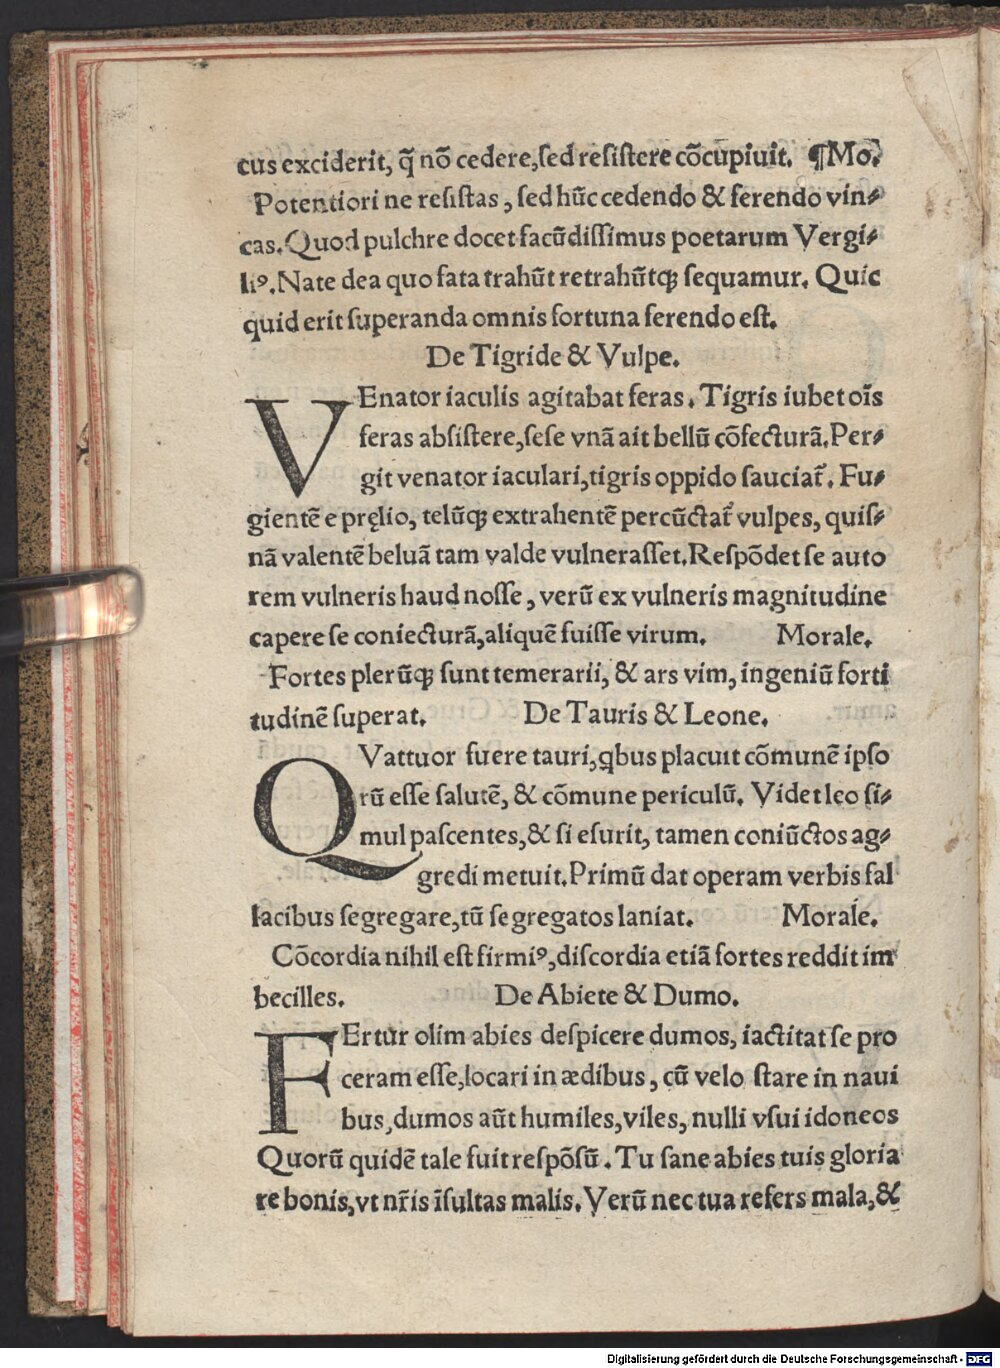 cus exciderit, q̃ nõ cedere, sed resistere cõcupiuit. ¶Mo.
Potentiori ne resistas, sed hũc cedendo & ferendo vin⸗
cas. Quod pulchre docet facũdissimus poetarum Vergi⸗
liꝰ. Nate dea quo fata trahũt retrahũtqꝫ sequamur. Quic
quid erit superanda omnis fortuna ferendo est.
De Tigride & Vulpe.
VEnator iaculis agitabat feras. Tigris iubet oĩs
feras absistere, sese vnã ait bellũ cõfecturã. Per⸗
git venator iaculari, tigris oppido sauciat᷑. Fu⸗
gientẽ e pręlio, telũqꝫ extrahentẽ percũctat᷑ vulpes, quis⸗
nã valentẽ beluã tam valde vulnerasset. Respõdet se auto
rem vulneris haud nosse, verũ ex vulneris magnitudine
capere se coniecturã, aliquẽ fuisse virum. Morale.
Fortes plerũqꝫ sunt temerarii, & ars vim, ingeniũ forti
tudinẽ superat. De Tauris & Leone.
QVattuor fuere tauri, qbus placuit cõmunẽ ipso
rũ esse salutẽ, & cõmune periculũ. Videt leo si⸗
mul pascentes, & si esurit, tamen coniũctos ag⸗
gredi metuit. Primũ dat operam verbis fal
lacibus segregare, tũ segregatos laniat. Morale.
Cõcordia nihil est firmiꝰ, discordia etiã fortes reddit im
becilles. De Abiete & Dumo.
FErtur olim abies despicere dumos, iactitat se pro
ceram esse, locari in ædibus, cũ velo stare in naui
bus, dumos aũt humiles, viles, nulli vsui idoneos
Quorũ quidẽ tale fuit respõsũ. Tu sane abies tuis gloria
re bonis, vt nr̃is ĩsultas malis. Verũ nec tua refers mala, &
Digitalisierung gefördert durch die Deutsche Forschungsgemeinschaft - DFG